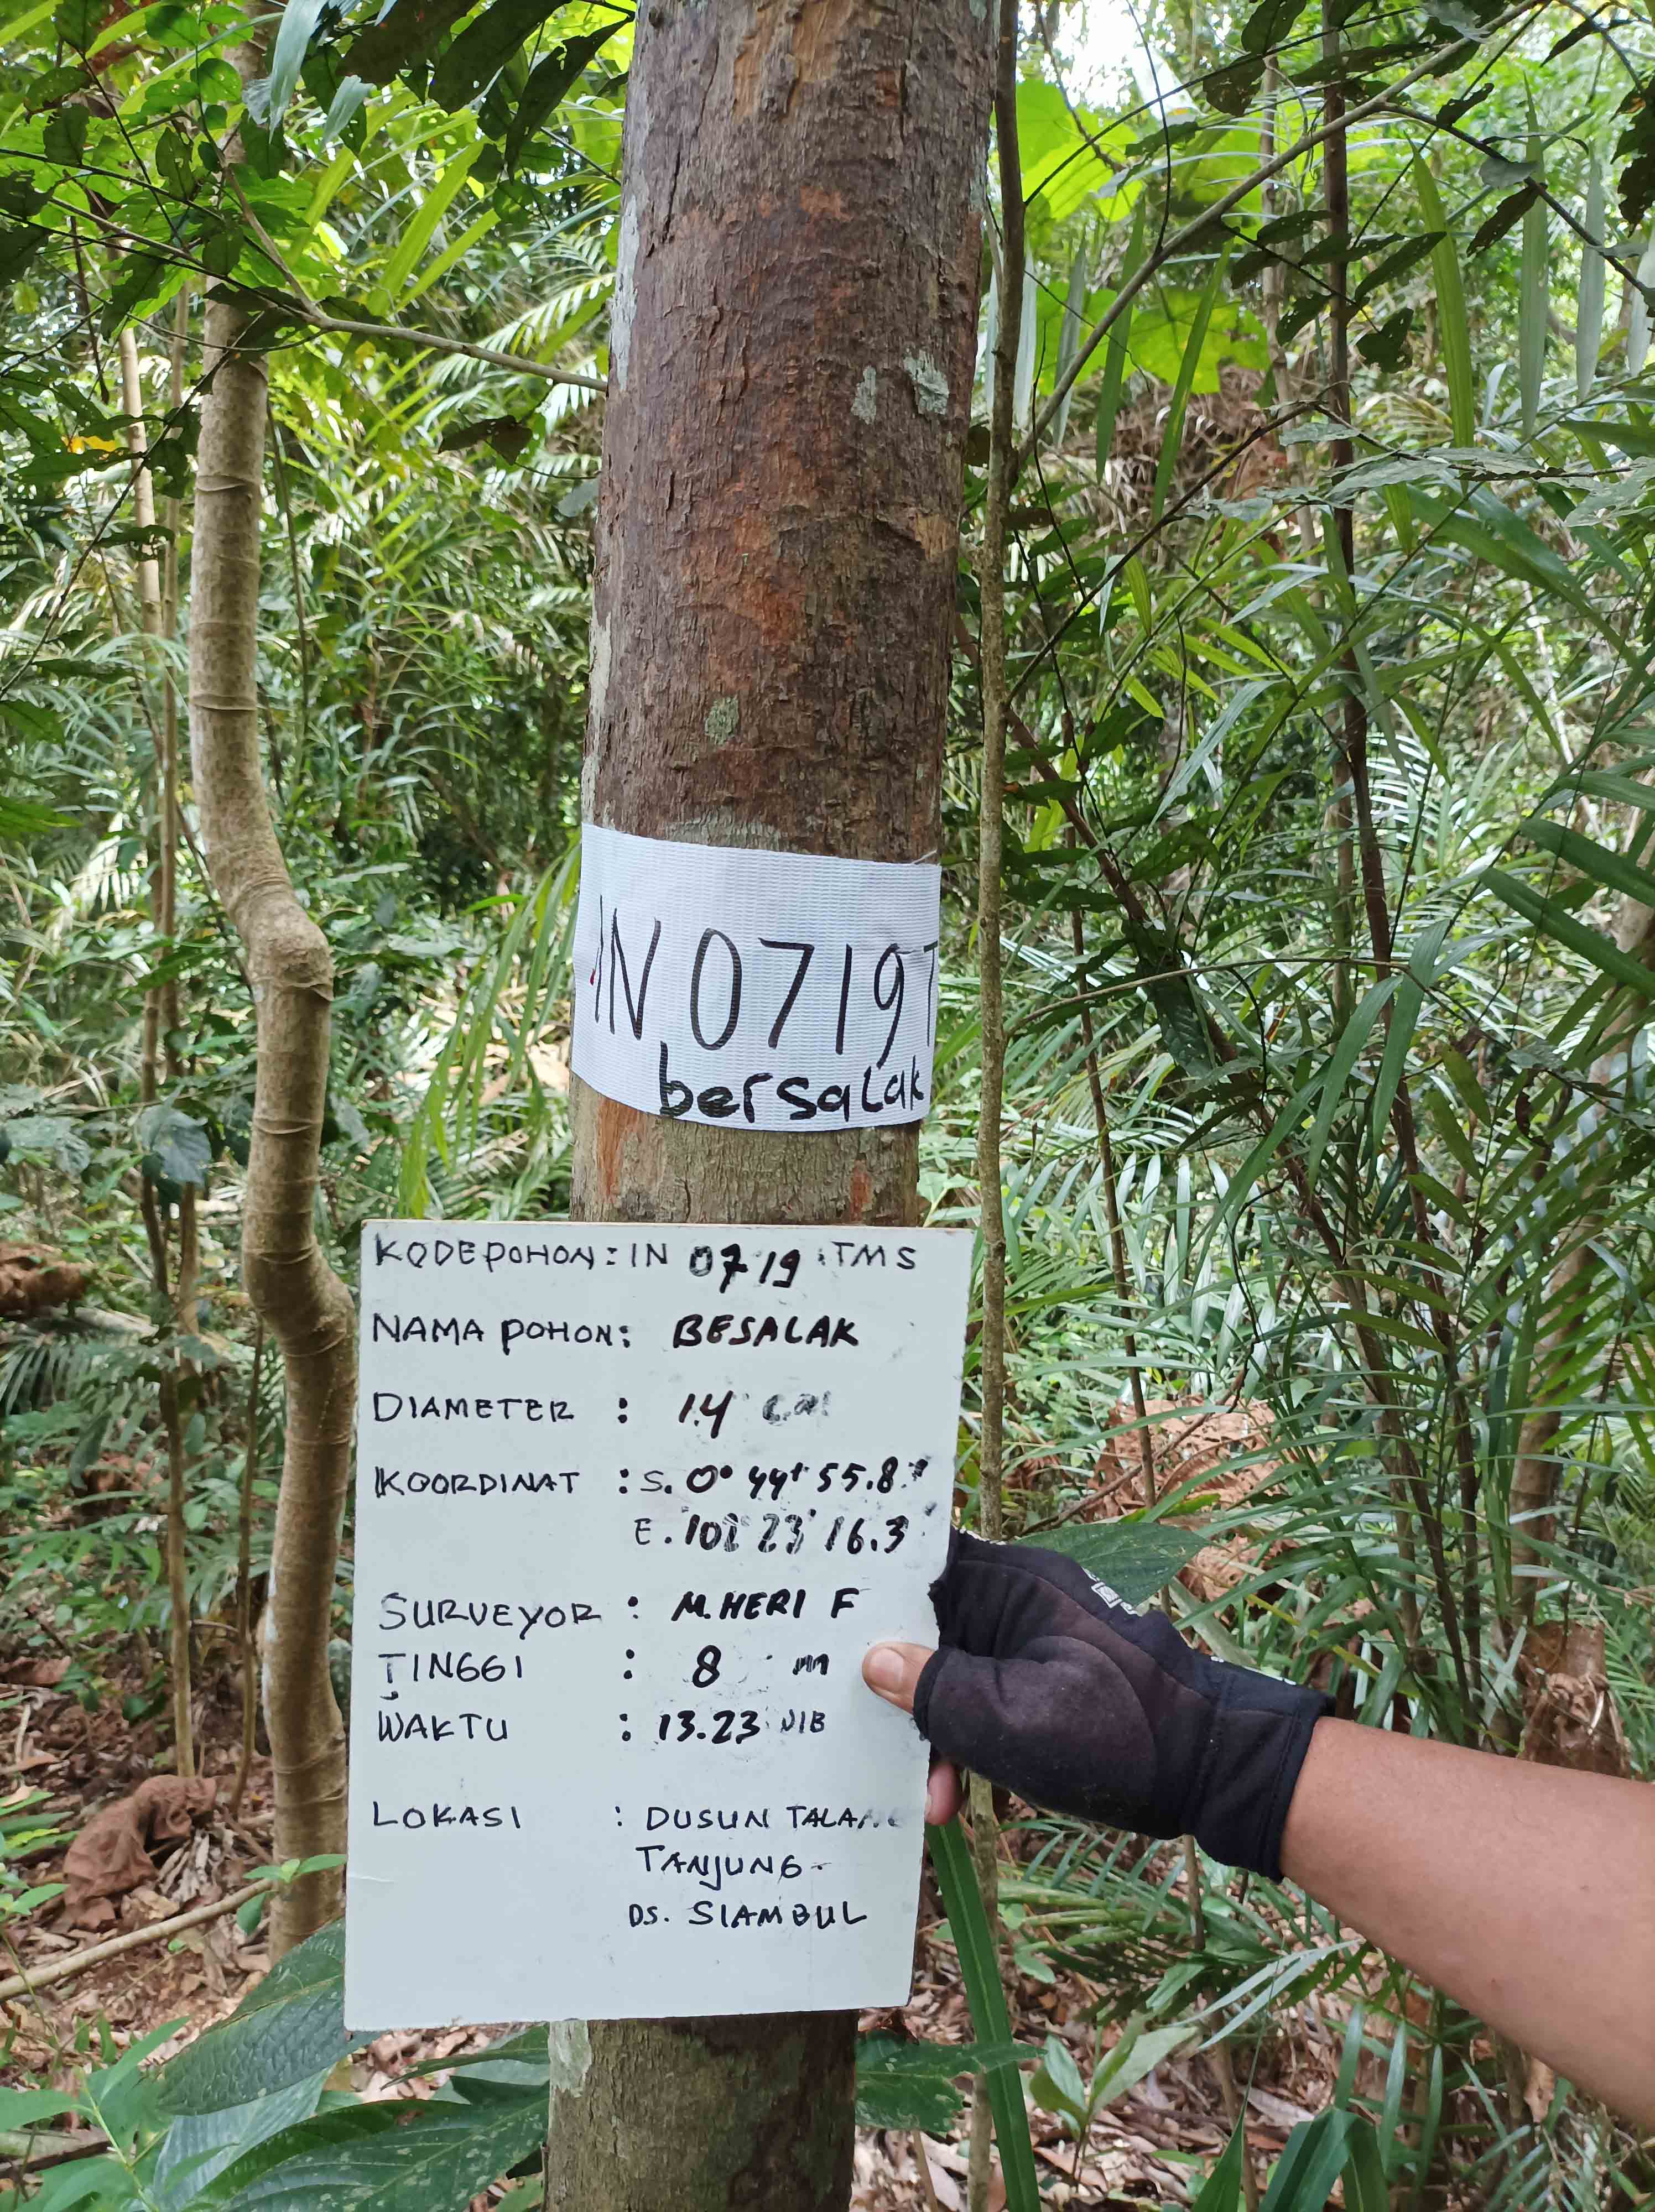 IN 0719T
bersalak
KODE POHON : IN 0719 TMS
NAMA POHON : BESALAK
DIAMETER : 14 cm
KOORDINAT : S. 0° 44' 55.8"
E. 102° 23' 16.3"
SURVEYOR : M.HERI F
TINGGI : 8 m
WAKTU : 13.23 WIB
LOKASI : DUSUN TALANG
TANJUNG
DS. SIAMBUL